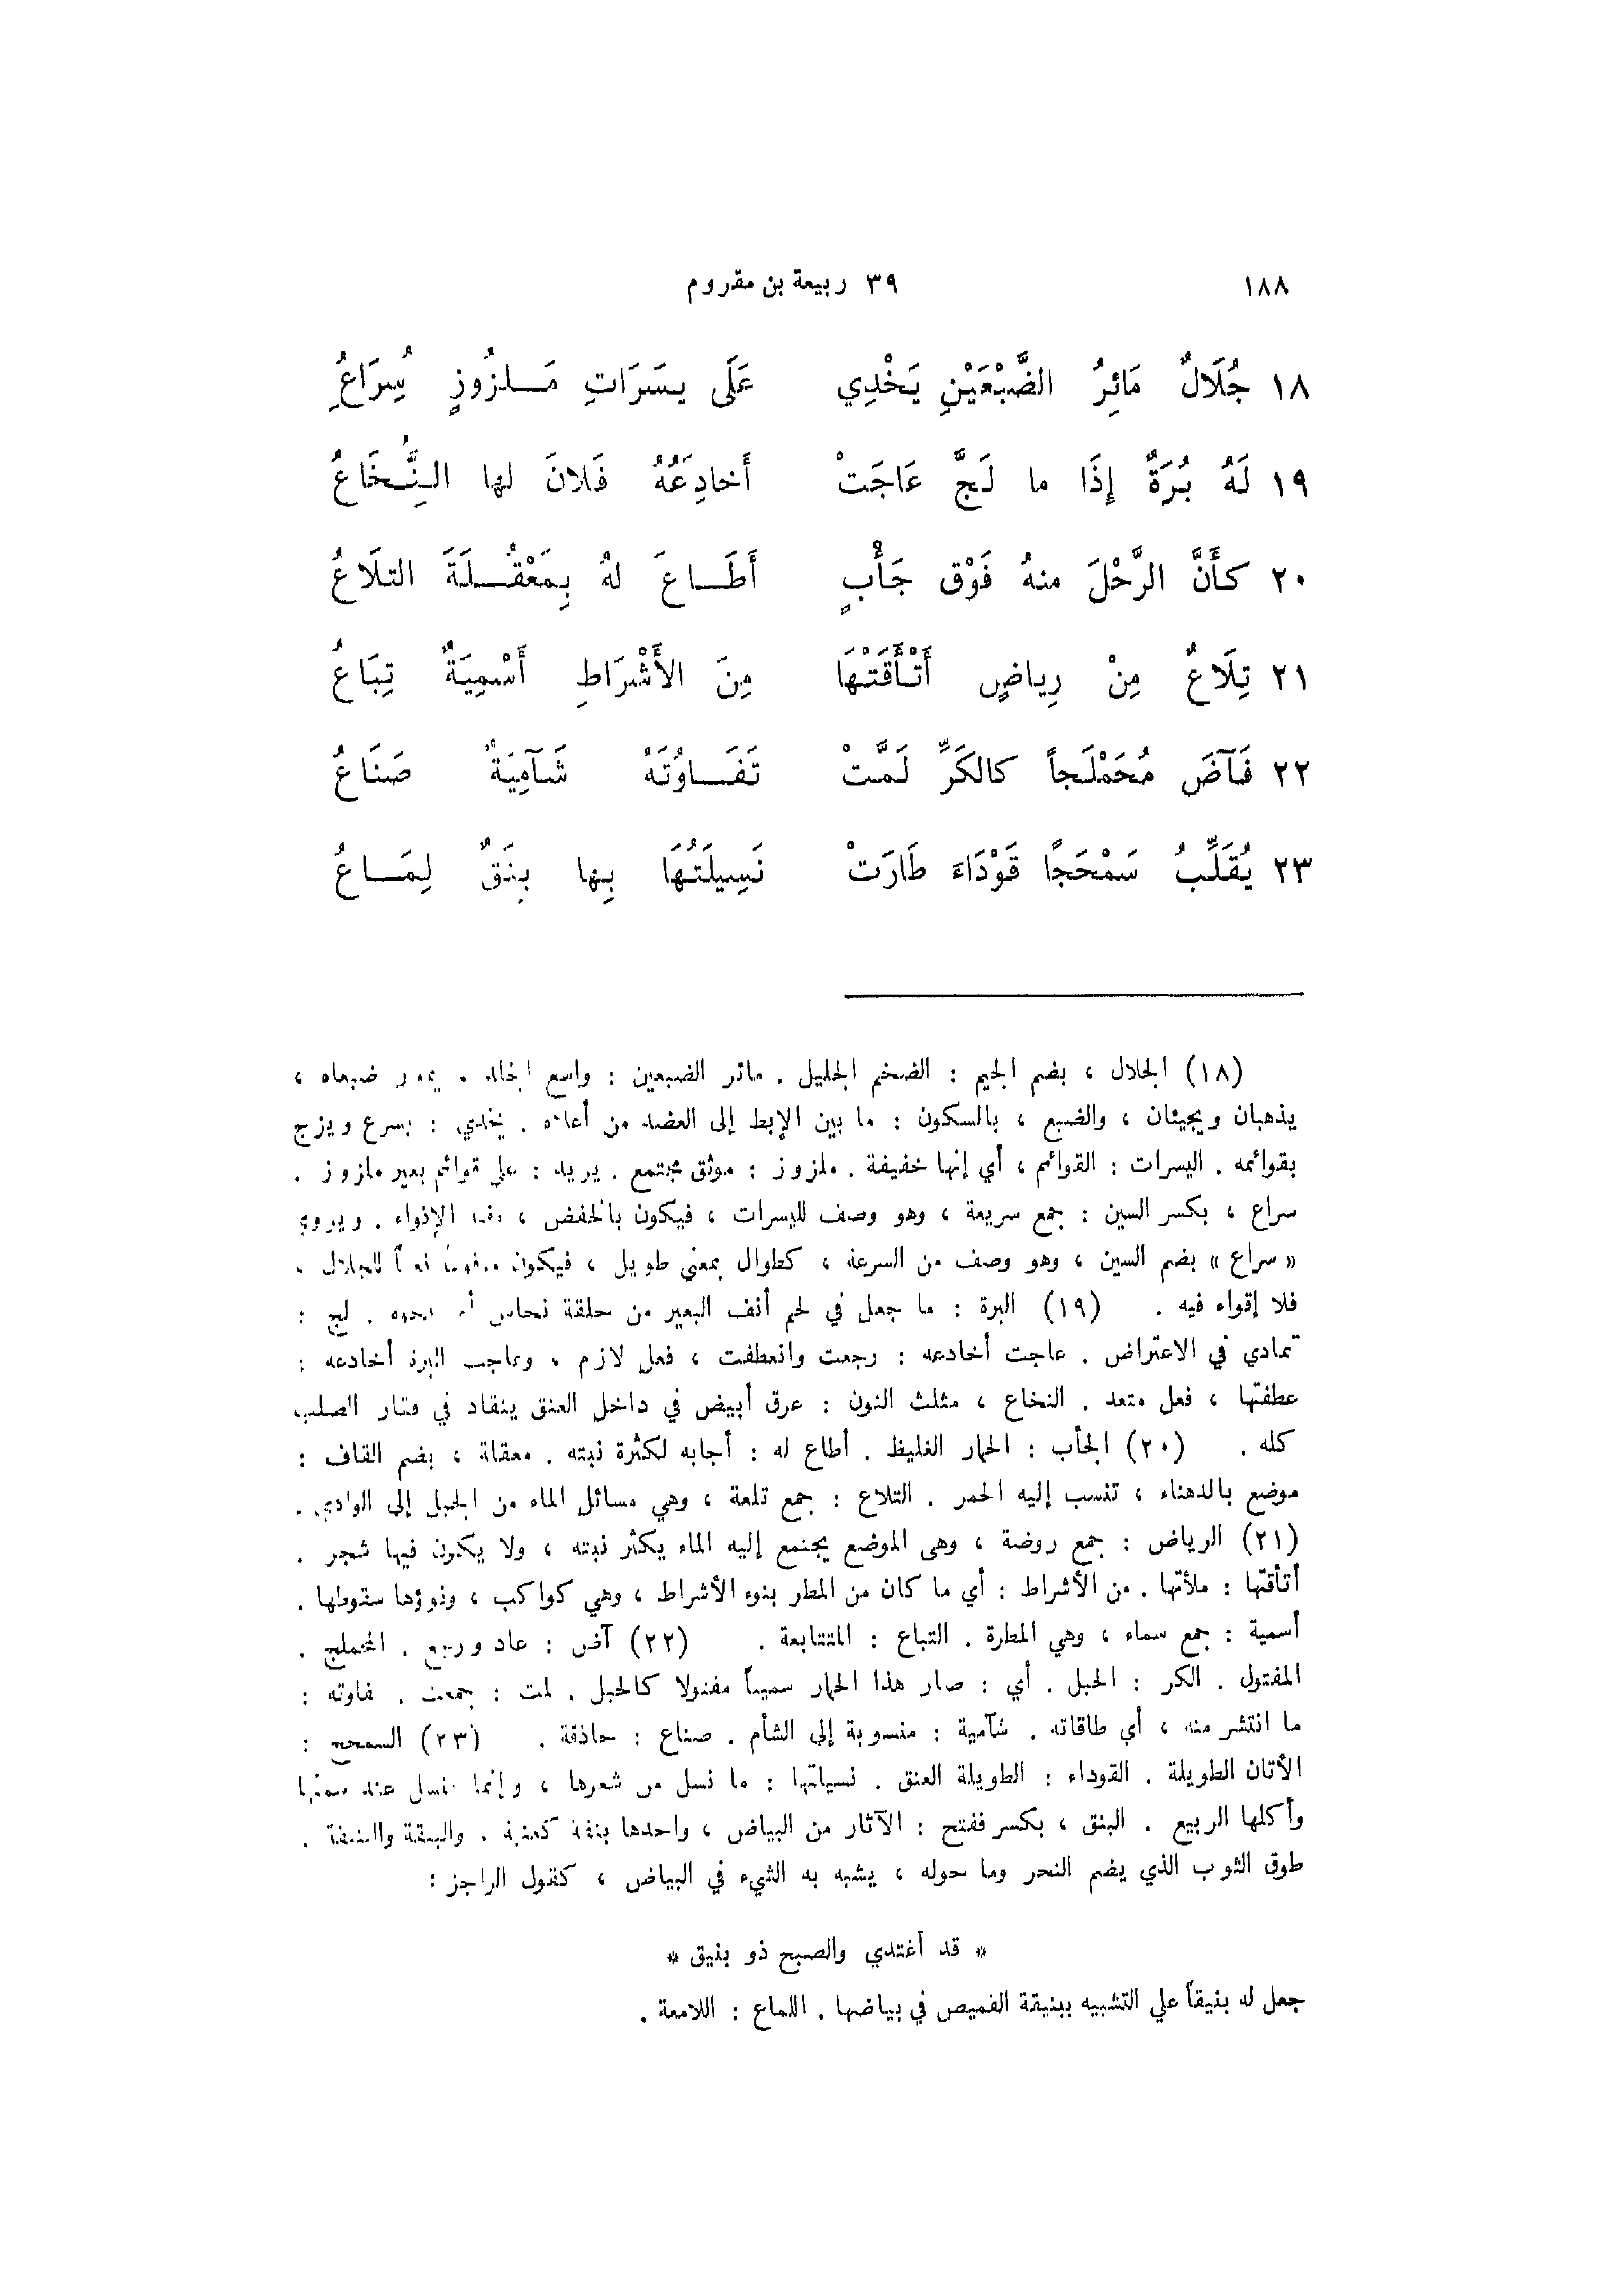 ١٨٨ ٣٩ ربيعة بن مقروم
١٨ جُلَالٌ مَائِرُ الضَّبْعَيْنِ يَخْدِي عَلَى يَسَرَاتِ مَلْزُوزٍ سُِرَاعٍُ
١٩ لَهُ بُرَةٌ إِذَا ما لَجَّ عَاجَتْ أَخادِعَُهُ فَلانَ لها النُِّخَاعُ
٢٠ كأَنَّ الرَّحْلَ منهُ فَوْق جَأْبٍ أَطَاعَ لهُ بِمَعْقُلَةَ التلَاعُ
٢١ تِلَاعٌ مِنْ رِياضٍ أَتْأَقَتْهَا مِنَ الأَشْرَاطِ أَسْمِيَةٌ تِبَاعُ
٢٢ فَآضَ مُحَمْلَجاً كالكَرِّ لَمَّتْ تَفَاوُتَهُ شَآمِيَةٌ صَنَاعُ
٢٣ يُقَلِّبُ سَمْحَجًا قَوْدَاءَ طَارَتْ نَسِيلَتُهَا بِها بِنَقٌ لِمَاعُ
(١٨) الجلال ، بضم الجيم : الضخم الجليل . مائر الضبعين : واسع ضبعاه ،
يذهبان ويجيئان ، والضبع ، بالسكون : ما بين الإبط إلى العضد من أعلاه . يخدي : يسرع ويزج
بقوائمه . اليسرات : القوائم ، أي إنها خفيفة . ملزوز : موثق مجتمع . يريد : على قوائم بعير ملزوز .
سراع ، بكسر السين : جمع سريعة ، وهو وصف لليسرات ، فيكون بالخفض ، وفيه الإقواء . ويروى
« سراع » بضم السين ، وهو وصف من السرعة ، كطوال بمعنى طويل ، فيكون للجلال ،
فلا إقواء فيه . (١٩) البرة : ما جعل في لحم أنف البعير من حلقة نحاس . لج :
تمادي في الاعتراض . عاجت أخادعه : رجعت وانعطفت ، فعل لازم ، وعاجت البرة أخادعه :
عطفتها ، فعل متعد . النخاع ، مثلث النون : عرق أبيض في داخل العنق ينقاد في فقار الصلب
كله . (٢٠) الجأب : الحمار الغليظ . أطاع له : أجابه لكثرة نبته . معقلة ، بضم القاف :
موضع بالدهناء ، تنسب إليه الحمر . التلاع : جمع تلعة ، وهي مسائل الماء من الجبل إلى الوادي .
(٢١) الرياض : جمع روضة ، وهى الموضع يجتمع إليه الماء يكثر نبته ، ولا يكون فيها شجر .
أتأقتها : ملأتها . من الأشراط : أي ما كان من المطر بنوء الأشراط ، وهي كواكب ، ونوؤها سقوطها .
أسمية : جمع سماء ، وهي المطرة . التباع : المتتابعة . (٢٢) آض : عاد ورجع . المحملج .
المفتول . الكر : الحبل . أي : صار هذا الحمار سميناً مفتولا كالحبل . لمت : جمعت . تفاوته :
ما انتشر منه ، أي طاقاته . شآمية : منسوبة إلى الشأم . صناع : حاذقة . (٢٣) السمحج :
الأتان الطويلة . القوداء : الطويلة العنق . نسيلتها : ما نسل من شعرها ، وإنما تنسل عند سمنها
وأكلها الربيع . البنق ، بكسر ففتح : الآثار من البياض ، واحدها بنقة كعنبة . والبنقة والبنيقة .
طوق الثوب الذي يضم النحر وما حوله ، يشبه به الشيء في البياض ، كقول الراجز :
* قد أغتدي والصبح ذو بنيق *
جعل له بنيقاً على التشبيه ببنيقة القميص في بياضها . اللماع : اللامعة .